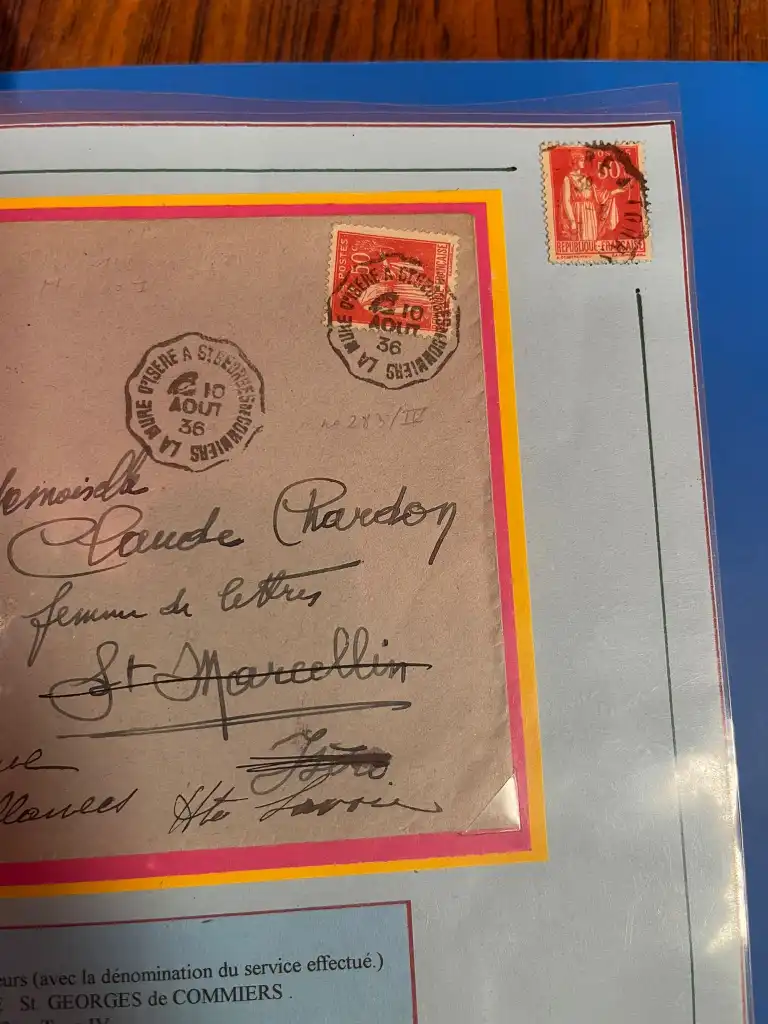 POSTES
50
REPUBLIQUE-FRANÇAISE
POSTES
50c
FRANÇAISE
LA MURE D'ISERE A ST GEORGES DE COMMIERS
10
AOUT
36
LA MURE D'ISERE A ST GEORGES DE COMMIERS
10
AOUT
36
no 283/IV
demoiselle
Claude Chardon
femme de lettres
St Marcellin
Isère
Hte Savoie
eurs (avec la dénomination du service effectué.)
St GEORGES de COMMIERS .